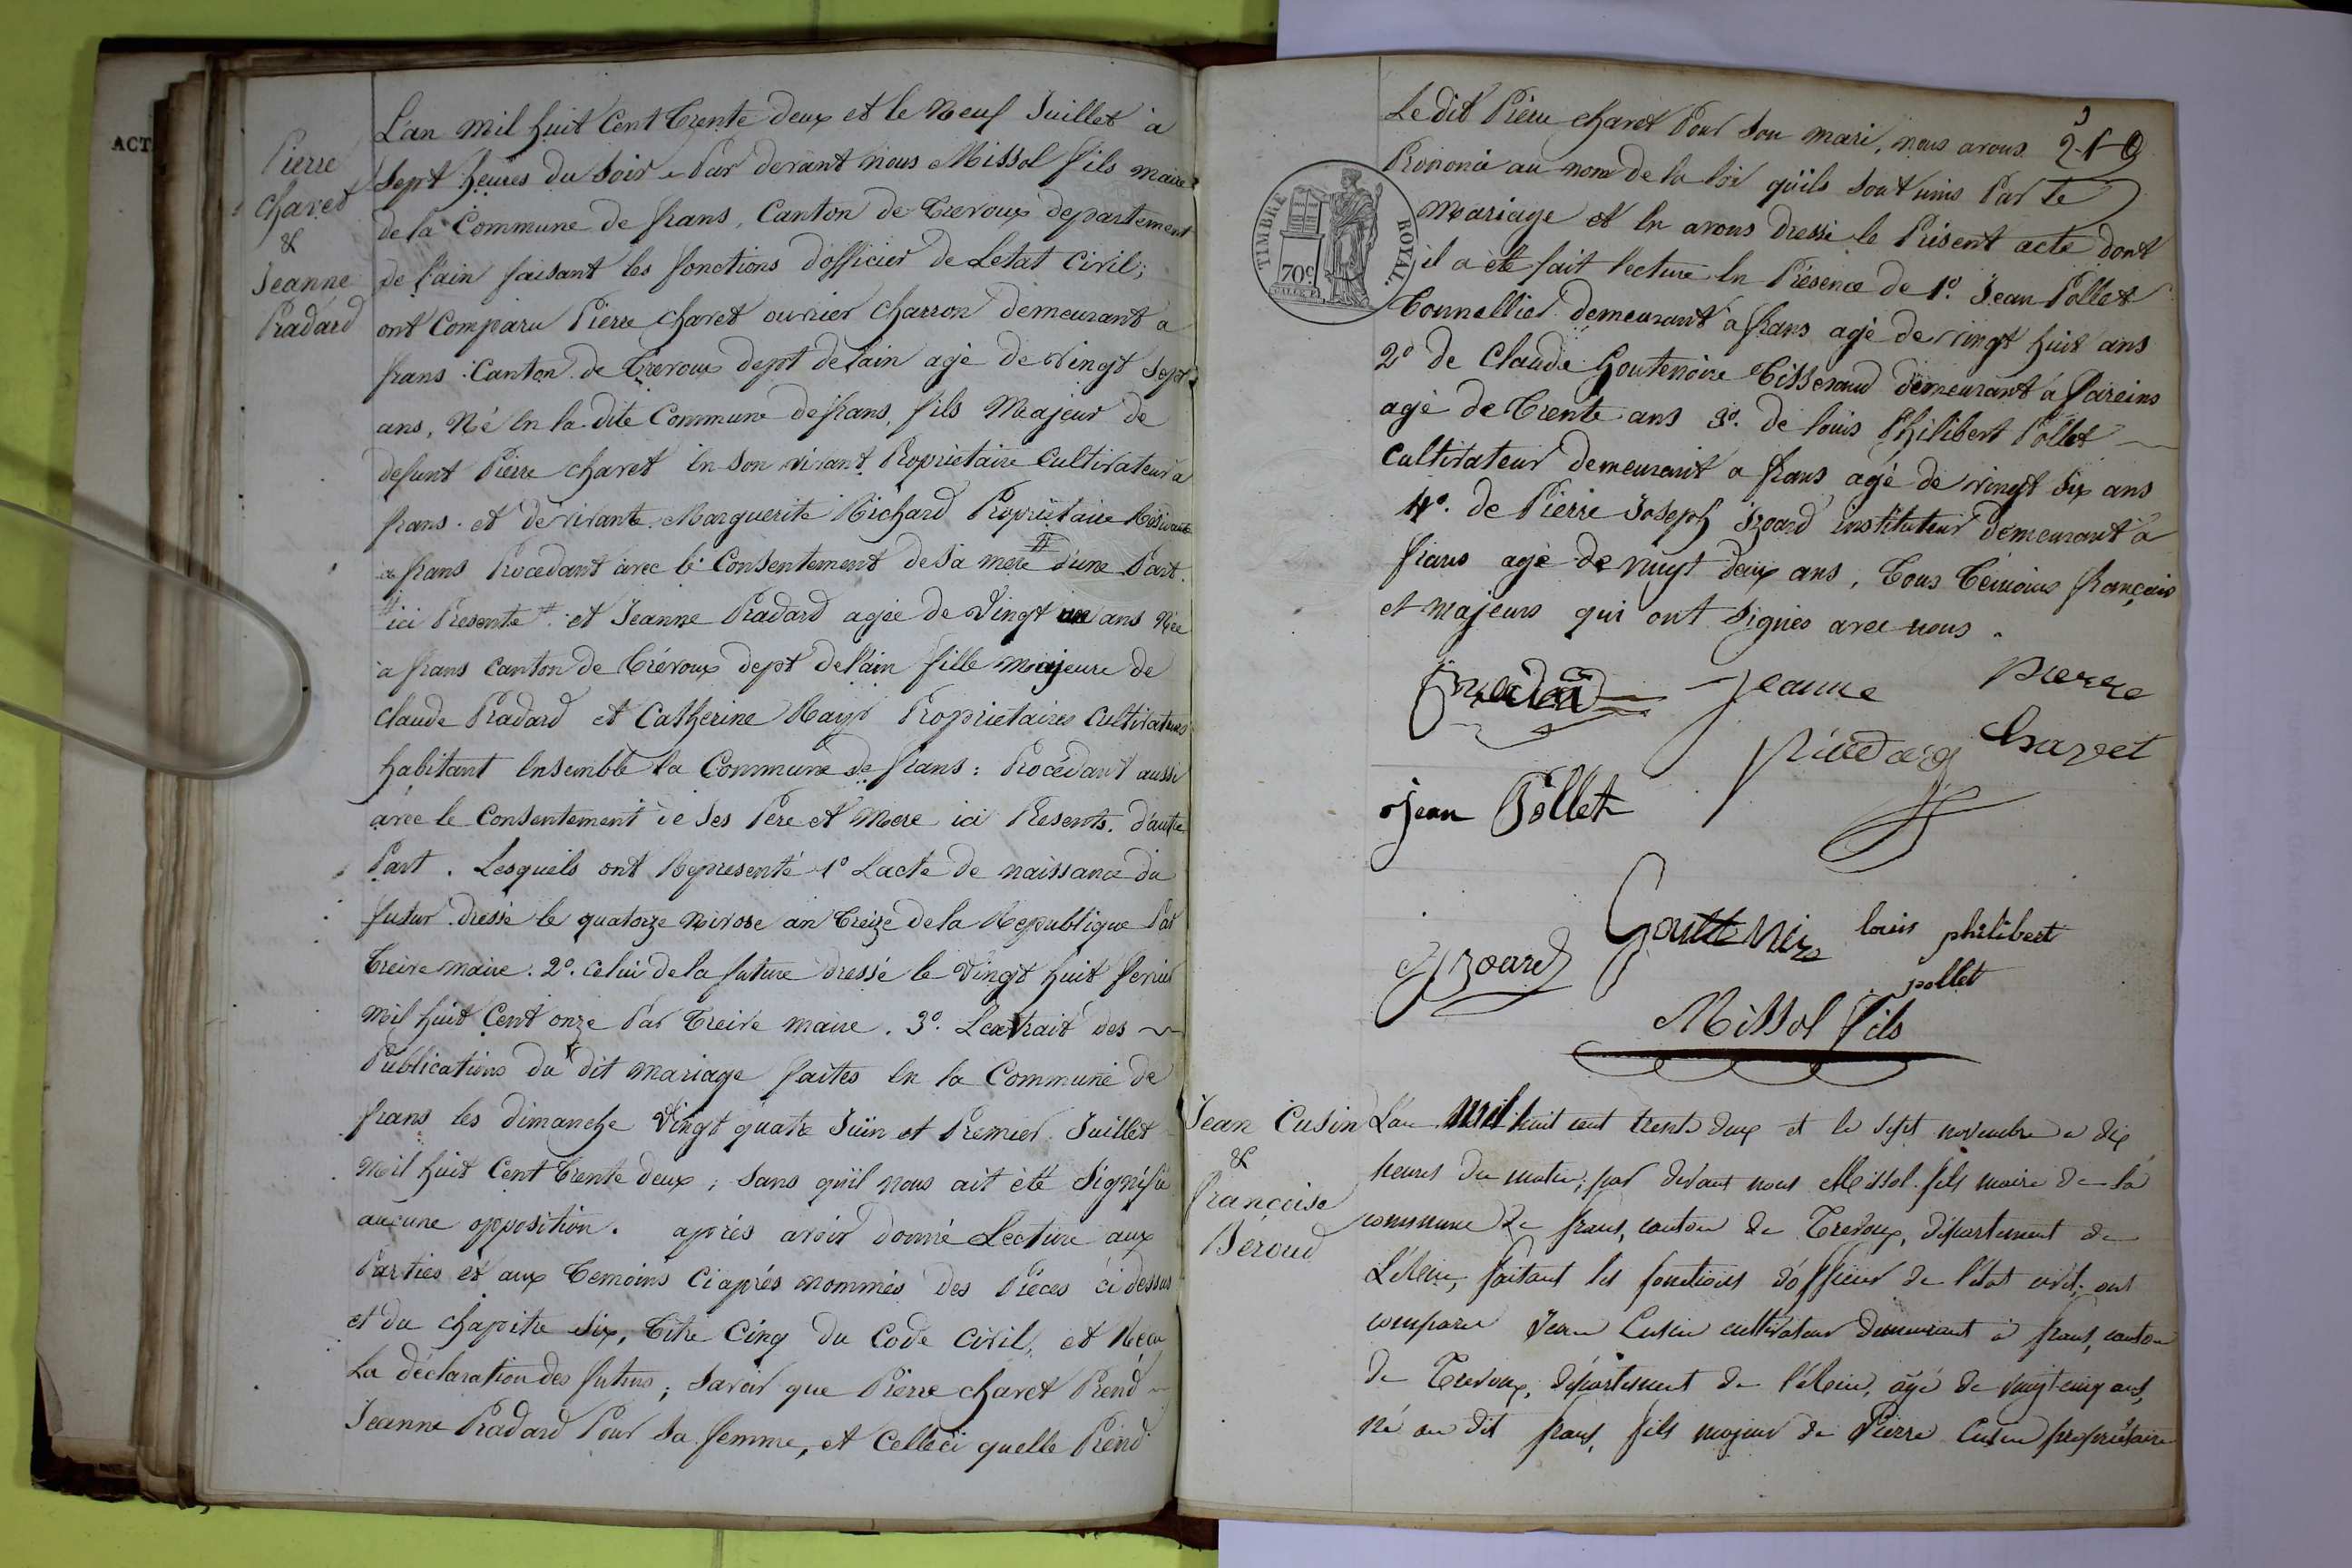 ACT
Pierre
Chavet
&
Jeanne
Pradard
L'an mil huit Cent trente deux et le neuf Juillet à
Sept heures du soir Par devant nous Missol fils maire
de la Commune de frans, Canton de Trevoux departement
de l'ain faisant les fonctions d'officier de Letat Civil;
ont Comparu Pierre chavet ouvrier Charron demeurant à
frans Canton de Trevoux dept de l'ain agé de vingt Sept
ans, Né en la dite Commune de frans, fils Majeur de
defunt Pierre chavet en son vivant Propriétaire Cultivateur a
frans et de vivante Marguerite Richard Propriétaire Résidante
a frans Procedant avec le Consentement de sa mere # d'une Part.
# ici Presente # et Jeanne Pradard agée de Vingt un ans Née
a frans canton de Trévoux dept de l'ain fille majeure de
Claude Pradard et Catherine Propriétaires Cultivateurs
habitant Ensemble la Commune de frans : Procédant aussi
avec le Consentement de ses Pere et Mere ici Presents. d'autre
Part. Lesquels ont Representé 1º Lacte de naissance du
futur dressé le quatorze Nivose an treize de la Republique Par
maire. 2º. celui de la future dressé le Vingt huit fevrier
mil huit Cent onze Par maire. 3º. Lextrait des
Publications du dit mariage faites en la Commune de
frans les dimanche Vingt quatre Juin et Premier Juillet
mil huit Cent trente deux; sans qu'il nous ait été Signifié
aucune opposition. après avoir donné Lecture aux
Parties et aux temoins Ciaprés nommés des Piéces ci dessus
et du chapitre six, titre Cinq du Code Civil, et Recu
La déclaration des futurs; savoir que Pierre chavet Prend
Jeanne Pradard Pour sa femme, et Celleci quelle Prend
Le dit Pierre chavet Pour son mari, nous avons
Prononcé au nom de la loi qu'ils sont unis Par le
mariage et en avons dressé le Présent acte dont
il a été fait lecture en Présence de 1º. Jean Pollet
Tonnellier demeurant a frans agé de vingt huit ans
2º de Claude Goutenoire Tisserand demeurant à fareins
agé de trente ans 3º. de louis Philibert Pollet
Cultivateur demeurant a frans agé de vingt six ans
4º. de Pierre Joseph Izoard instituteur demeurant à
frans agé de vingt deux ans, tous témoins français
et majeurs qui ont signés avec nous.
TIMBRE ROYAL
70 c.
Jeanne Pierre
Pradard Chavet
jean Pollet
louis philibert
Izoard
pollet
Missol fils
Jean Cusin
&
françoise
Béroud
L'an mil huit cent trente deux et le sept novembre à dix
heures du matin, par devant nous Missol fils maire de la
commune de frans, canton de Trevoux, département de
L'Ain, faisant les fonctions d'officier de l'état civil, ont
comparu Jean Cusin cultivateur demeurant à frans, canton
de Trevoux, département de l'Ain, âgé de vingt-cinq ans,
né au dit frans, fils majeur de Pierre Cusin propriétaire